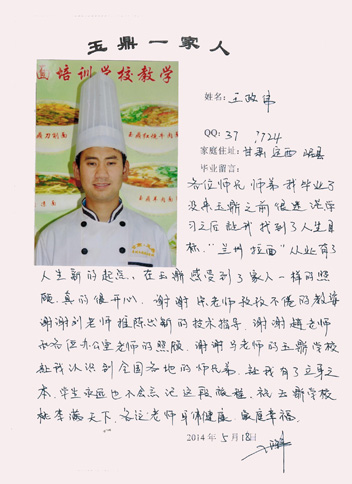 玉鼎一家人
面培训学校教学
姓名：王政伟
QQ：37 7724
家庭住址：甘肃定西岷县
毕业留言：
各位师兄师弟我毕业了
没来玉鼎之前很迷茫学
习之后让我找到了人生目
标，"兰州拉面"从此有了
人生新的起点，在玉鼎感受到了家人一样的照
顾，真的很开心，谢谢 老师孜孜不倦的教诲
谢谢刘老师推陈出新的技术指导，谢谢赵老师
和各位办公室老师的照顾，谢谢 老师的玉鼎学校
让我认识到全国各地的师兄弟，让我有了立身之
本，学生永远也不会忘记这段旅程，祝玉鼎学校
桃李满天下，各位老师身体健康，家庭幸福。
2014年5月18日